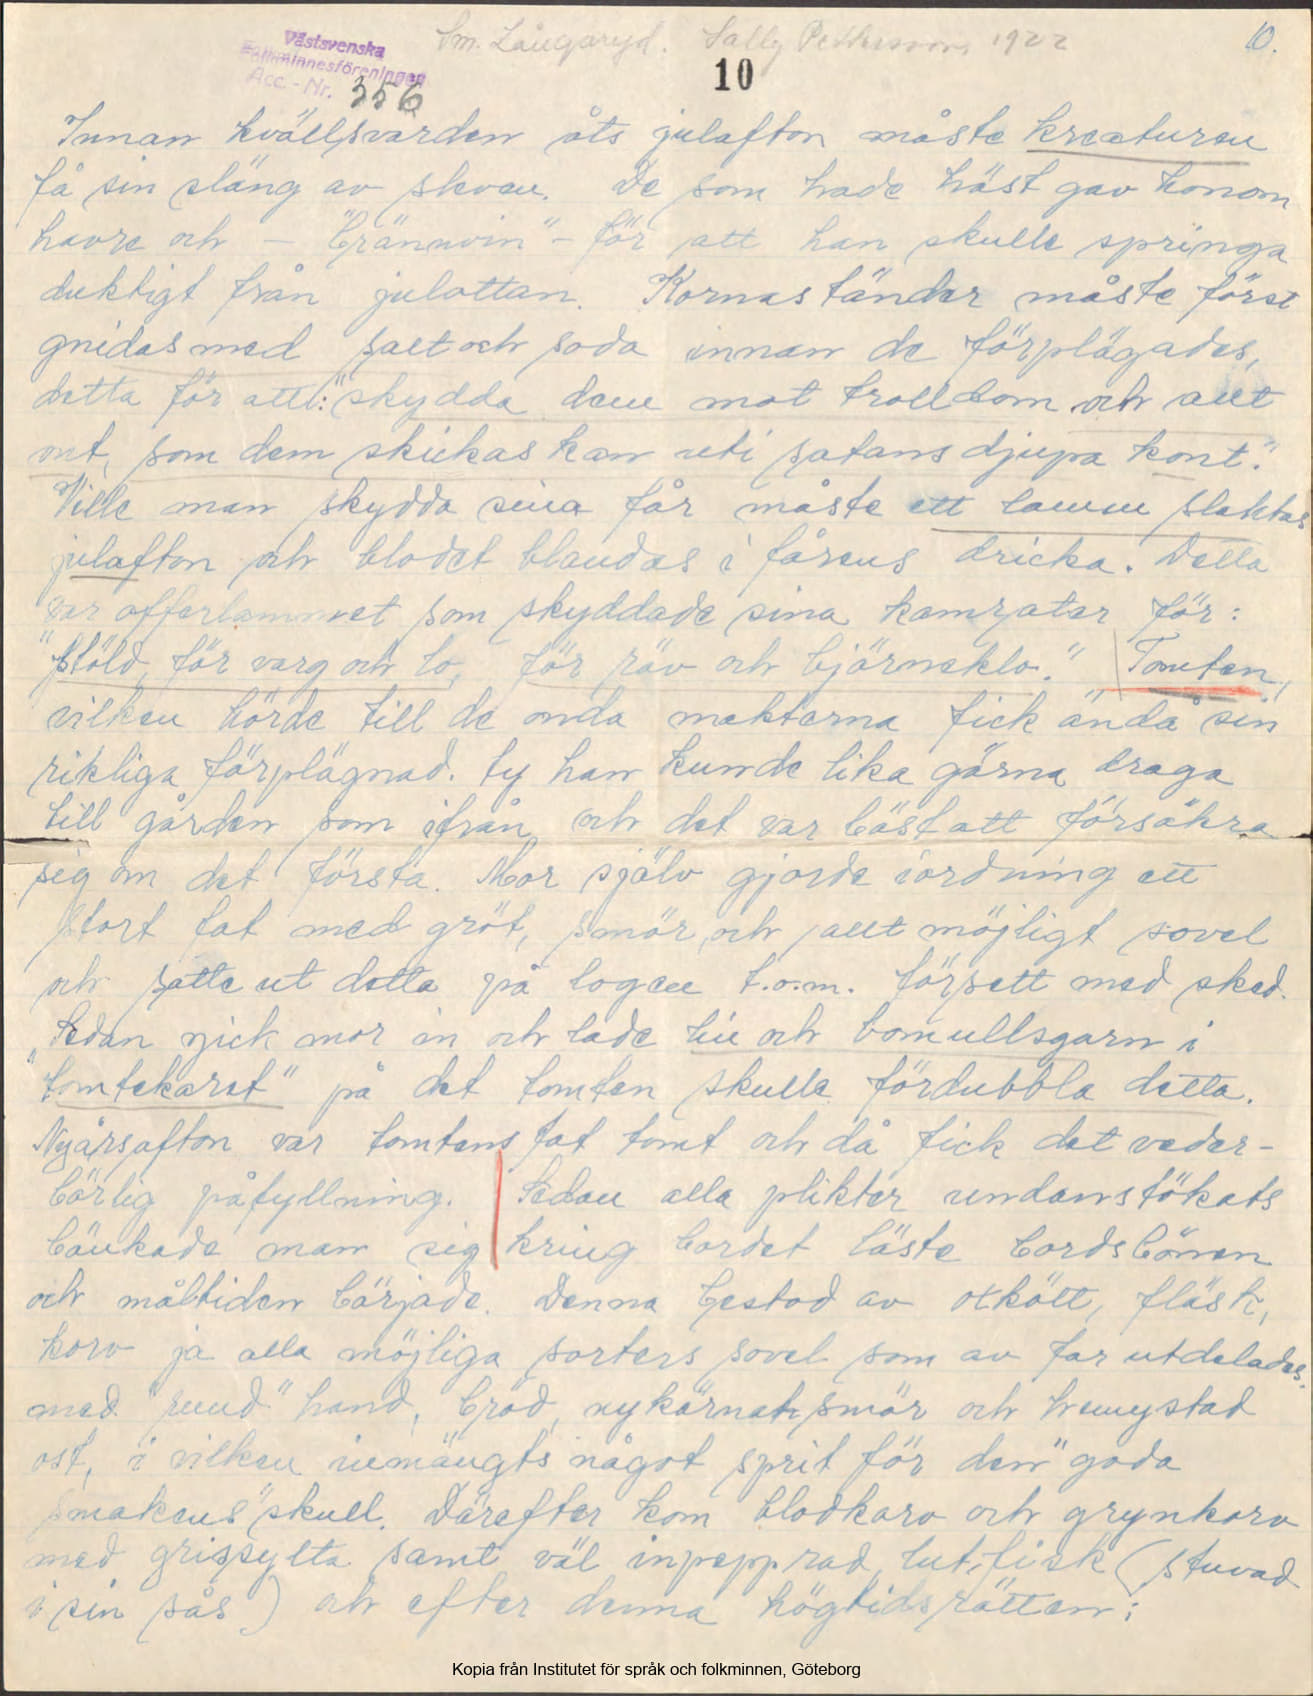 Västsvenska
Folkminnesföreningen
Acc. - Nr. 356
Sm. Långaryd. Sally Pettersson 1922
10
10.
Innan kvällsvarden åts julafton måste kreaturen
få sin släng av slevan. De som hade häst gav honom
havre och – "brännvin" – för att han skulle springa
duktigt från julottan. Kornas tänder måste först
gnidas med salt och soda innan de förplägades,
detta för att: "skydda dem mot trolldom och allt
ont, som dem skickas kan uti satans djupa kont."
Ville man skydda sina får måste ett lamm slaktas
julafton och blodet blandas i fårens dricka. Detta
var offerlammet som skyddade sina kamrater för:
"stöld, för varg och lo, för räv och björneklo." Tomten,
vilken hörde till de onda makterna fick ändå sin
rikliga förplägnad. ty han kunde lika gärna draga
till gården som ifrån och det var bäst att försäkra
sig om det första. Mor själv gjorde iordning ett
stort fat med gröt, smör, och allt möjligt sovel
och satte ut detta på logen t.o.m. försett med sked.
Sedan gick mor in och lade lin och bomullsgarn i
"tomtekaret" på det tomten skulle fördubbla detta.
Nyårsafton var tomtens fat tomt och då fick det veder-
börlig påfyllning. Sedan alla plikter undanstökats
bänkade man sig kring bordet läste bordsbönen
och måltiden började. Denna bestod av oxkött, fläsk,
korv ja alla möjliga sorters sovel som av far utdelades,
med "rund" hand, bröd, nykärnat smör och hemystad
ost, i vilken inmängts något sprit för den "goda
smakens" skull. Därefter kom blodkorv och grynkorv
med grissylta samt väl inpepprad lutfisk (stuvad
i sin sås) och efter denna högtidsrätten:
Kopia från Institutet för språk och folkminnen, Göteborg